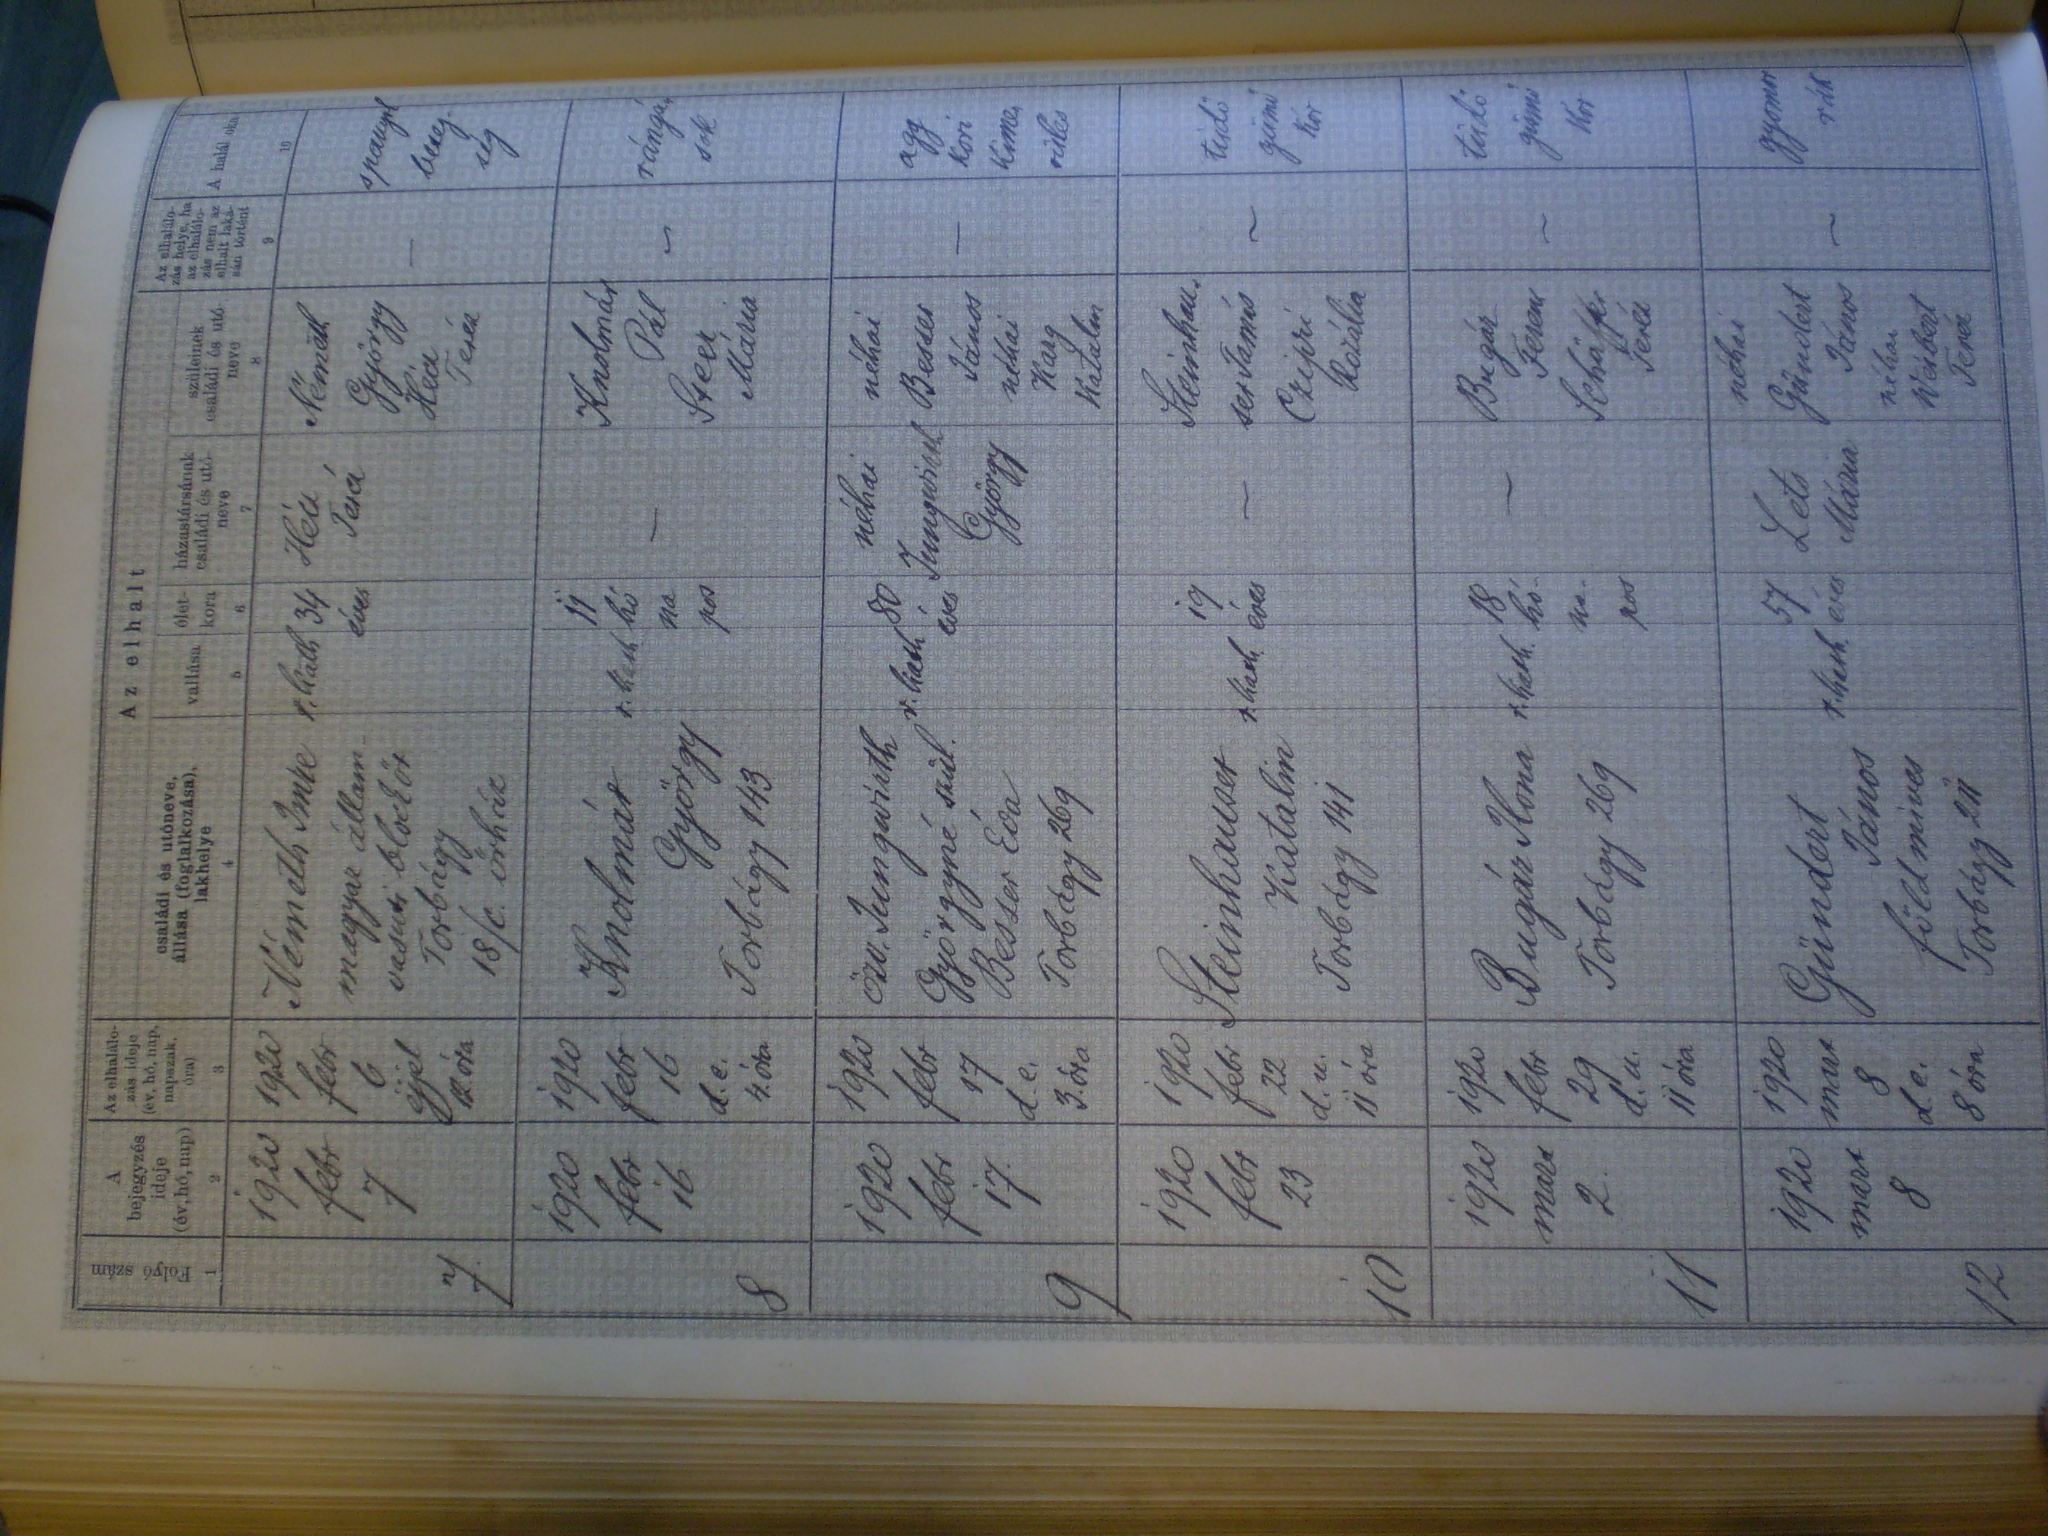 Az elhalt
Folyó szám
A bejegyzés ideje (év, hó, nap)
Az elhalálo-
zás ideje
(év, hó, nap,
napszak,
óra)
családi és utóneve,
állása (foglalkozása),
lakhelye
vallása
élet-
kora
házastársának
családi és utó-
neve
szüleinek
családi és utó-
neve
Az elhalálo-
zás helye, ha
az elhalálo-
zás nem az
elhalt laká-
sán történt
A halál oka
1 2 3 4 5 6 7 8 9 10
7.
1920
febr
7
1920
febr
6
éjjel
12 óra
Németh Imre
magyar állam-
vasuti blockőr
Torbágy
18/c. őrház
r. kath
34
éves
Héci
Teréz
Németh
György
Héci
Teréz
—
spanyol
beteg-
ség
8
1920
febr
16
1920
febr
16
d. e.
4 óra
Knolmár
György
Torbágy 143
r. kath
11
hó
na
pos
—
Knolmár
Pál
Steer
Mária
—
rángá-
sok
9
1920
febr
17.
1920
febr
17
d. e.
3 óra
özv. Jungwirth
Györgyné szül.
Besser Éva
Torbágy 269
r. kath
80
éves
néhai
Jungwirth
György
néhai
Besser
János
néhai
Karg
Katalin
—
agg
kori
kime-
rülés
10
1920
febr
23
1920
febr
22
d. u.
11 óra
Steinhauser
Katalin
Torbágy 141
r. kath
19
éves
—
Steinhau-
ser Tamás
Czipri
Rozália
—
tüdő
gümő
kór
11
1920
marz
2.
1920
febr
29
d. u.
11 óra
Bugár Ilona
Torbágy 269
r. kath.
18
hó-
na-
pos
—
Bugár
Ferenc
Teréz
—
tüdő
gümő
kór
12
1920
marz
8
1920
marz
8
d. e.
8 óra
Gündert
János
földmives
Torbágy 211
r. kath.
57
éves
Lets
Mária
néhai
Gündert
János
néhai
Teréz
—
gyomor
rák